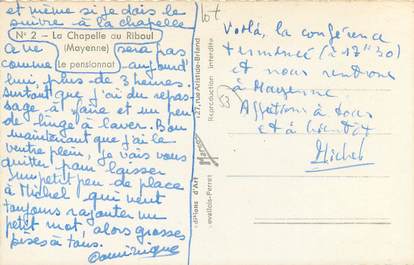 et même si je dois le
suivre à la chapelle
N° 2 - La Chapelle au Riboul
(Mayenne)
Le pensionnat
ce ne sera pas
comme aujourd'
hui, plus de 3 heures.
surtout que j'ai du repas-
sage à faire et un peu
de linge à laver. Bon
maintenant que j'ai le
ventre plein, je vais vous
quitter pour laisser
un petit peu de place
à Michel qui veut
toujours rajouter un
petit mot, alors grosses
bises à tous.
Dominique
127, rue Aristide-Briand
Reproduction interdite
Editions d'Art
Levallois-Perret
Voilà, la conférence
terminée (à 17h30)
et nous rentrons
à Mayenne
53
Affections à tous
et à bientôt
Michel